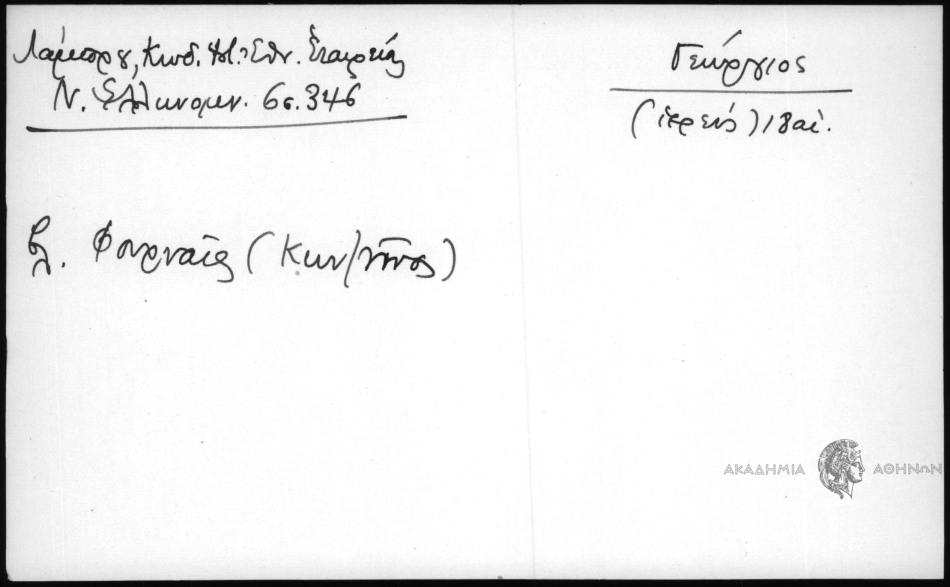 Λάμπρου, Κωδ. Ιστ.-Εθν. Εταιρείας
Ν. Ελληνομν. 6σ. 346
Γεώργιος
(ιερεύς) 18 αἰ.
βλ. Φουρναίος (Κων/τῖνος)
ΑΚΑΔΗΜΙΑ ΑΘΗΝΩΝ